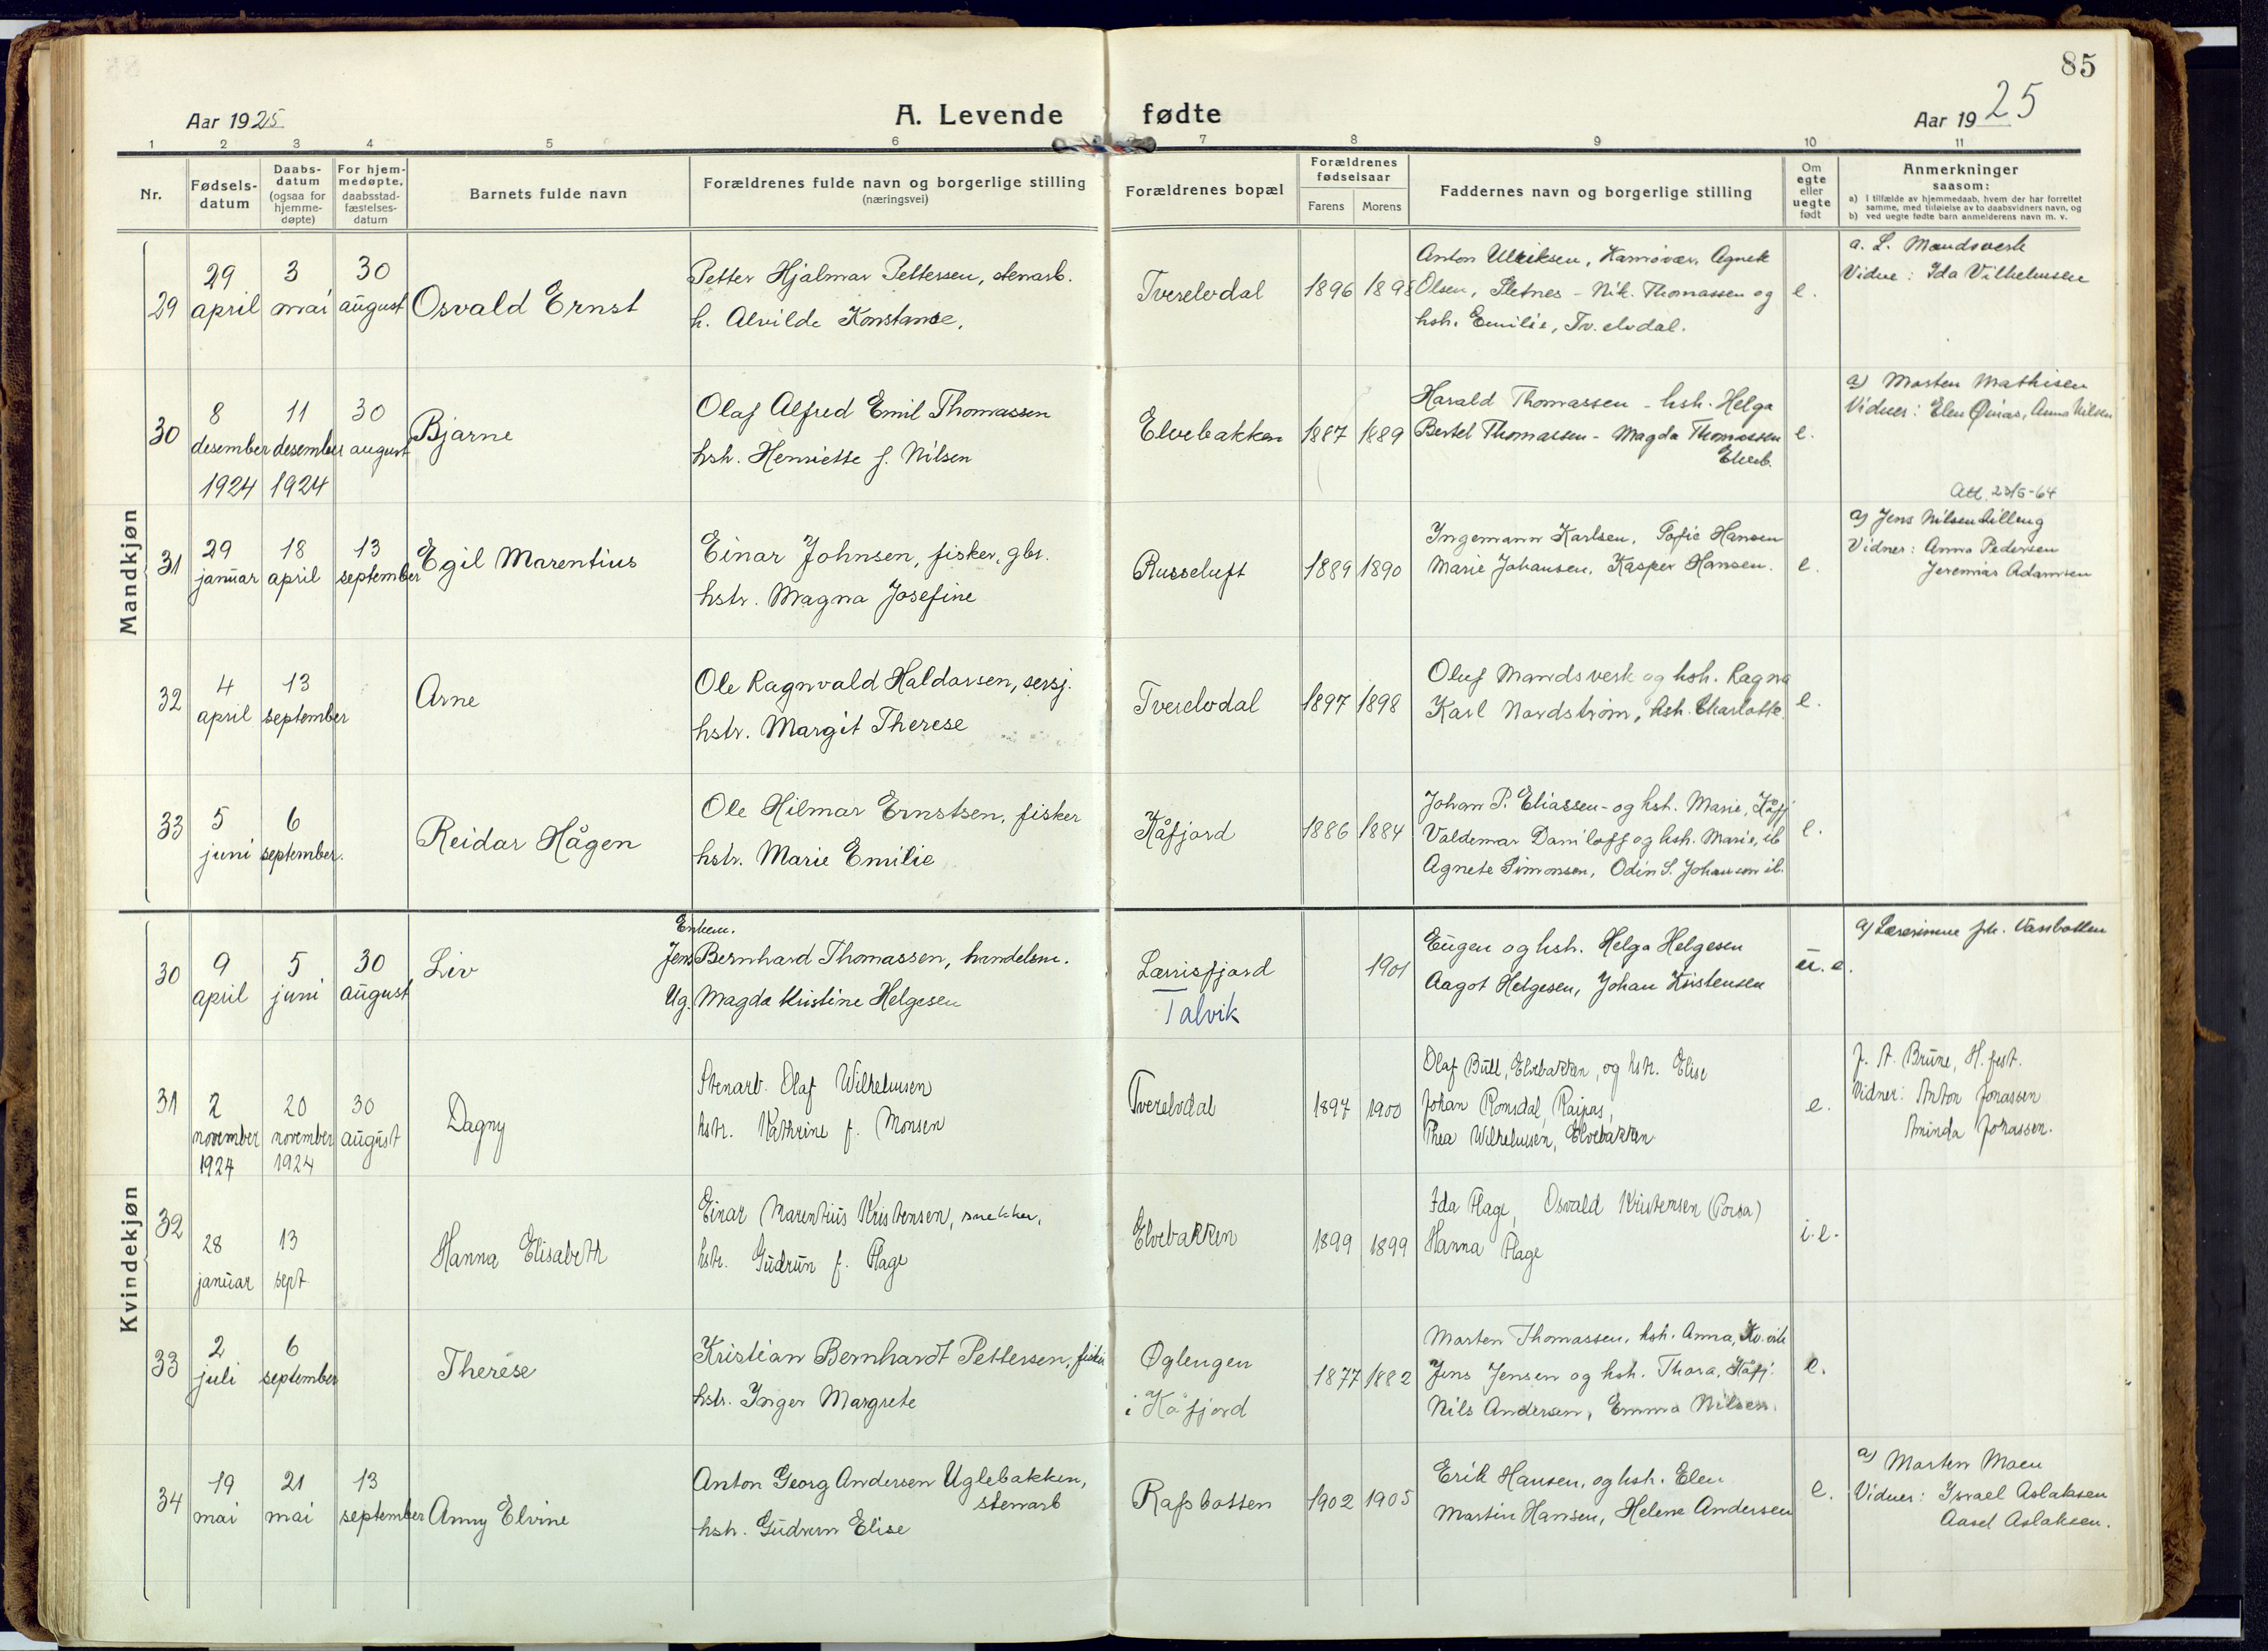 85
Aar 1925
A. Levende fødte
Aar 1925
1 2 3 4 5 6 7 8 9 10 11
Nr.
Fødsels-
datum
Daabs-
datum
(ogsaa for
hjemme-
døpte)
For hjem-
medøpte,
daabsstad-
fæstelses-
datum
Barnets fulde navn
Forældrenes fulde navn og borgerlige stilling
(næringsvei)
Forældrenes bopæl
Forældrenes
fødselsaar
Farens Morens
Faddernes navn og borgerlige stilling
Om
egte
eller
uegte
født
Anmerkninger
saasom:
a) i tilfælde av hjemmedaab, hvem der har forrettet
samme, med tilføielse av to daabsvidners navn, og
b) ved uegte fødte barn anmelderens navn m. v.
Mandkjøn
29
29
april
3
mai
30
august
Osvald Ernst
Petter Hjalmar Pettersen, stenarb.
h. Alvilde Konstanse,
Tverelvdal
1896 1898
Anton Ulriksen, Kamøvær, Agnete
Olsen, Sletnes - Nik. Thomassen og
hsh. Emilie, Tv. elvdal.
e.
a. L. Mandsverk
Vidne: Ida Vilhelmsen
30
8
desember
1924
11
desember
1924
30
august
Bjarne
Olaf Alfred Emil Thomassen
hsh. Henriette f. Nilsen
Elvebakken
1887 1889
Harald Thomassen - hsh. Helga
Bertel Thomassen - Magda Thomassen
Elveb.
e.
a) Morten Mathisen
Vidner: Elen Øinas, Anna Nilsen
31
29
januar
18
april
13
september
Egil Marentius
Einar Johnsen, fisker, gbr.
hstr. Magna Josefine
Russeluft
1889 1890
Ingemann Karlsen, Sofie Hansen
Marie Johansen, Kasper Hansen.
e.
Att. 23/5-64
a) Jens Nilsen Lilleng
Vidner: Anna Pedersen
Jeremias Adamsen
32
4
april
13
september
Arne
Ole Ragnvald Haldorsen, sersj.
hstr. Margit Therese
Tverelvdal
1897 1898
Oluf Mandsverk og hsh. Ragna
Karl Nordstrøm, hsh. Charlotte.
e.
33
5
juni
6
september.
Reidar Hågen
Ole Hilmar Ernstsen, fisker
hstr. Marie Emilie
Kåfjord
1886 1884
Johan P. Eliassen - og hsh. Marie, Kåfj
Valdemar Daniloff og hsh. Marie, ib
Agnete Simonsen, Odin S. Johansen ib.
e.
Kvindekjøn
30
9
april
5
juni
30
august
Liv
Enkem.
Jens Bernhard Thomassen, handelsm.
Ug. Magda Kristine Helgesen
Lærrisfjord
Talvik
1901
Eugen og hsh. Helga Helgesen
Aagot Helgesen, Johan Kristensen
u. e.
a) Lærerinne frk. Vassbotten
31
2
november
1924
20
november
1924
30
august
Dagny
Stenarb. Olaf Wilhelmsen
hstr. Kathrine f. Monsen
Tverelvdal
1897 1900
Olaf Bull, Elvebakken, og hstr. Elise
Johan Romsdal, Raipas,
Thea Wilhelmsen, Elvebakken
e.
J. A. Brune, H.fest.
Vidner: Anton Jonassen
Aminda Jonassen.
32
28
januar
13
sept.
Hanna Elisabeth
Einar Marentius Kristensen, snekker,
hstr. Gudrun f. Hage
Elvebakken
1899 1899
Ida Hage, Osvald Kristensen (Porsa)
Hanna Hage
i.e.
33
2
juli
6
september
Therese
Kristian Bernhardt Pettersen, fisker
hstr. Inger Margrete
Øglengen
i Kåfjord
1877 1882
Morten Thomassen, hsh. Anna, Kv.vik
Jens Jensen og hsh. Thora, Kåfj.
Nils Andersen, Emma Nilsen.
e.
34
19
mai
21
mai
13
september
Anny Elvine
Anton Georg Andersen Uglebakken,
stenarb
hsh. Gudrun Elise
Rafsbotten
1902 1905
Erik Hansen, og hsh. Elen
Martin Hansen, Helene Andersen
e.
a) Morten Moen
Vidner: Israel Aslaksen
Aasel Aslaksen.